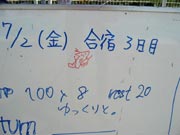 7/2 (金) 合宿 3日目
100 × 8 rest 20
ゆっくりと。